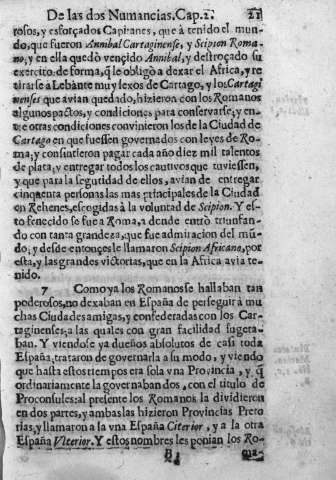 De las dos Numancias. Cap. 2. 21
rosos, y esforçados Capitanes, que à tenido el mun-
do, que fueron Annibal Cartaginense, y Scipion Roma-
no, y en ella quedò vençido Annibal, y destroçado su
exercito de forma, q̃ le obligò a dexar el Africa, y re
tirarse a Lebante muy lexos de Cartago, y los Cartagi
nenses que avian quedado, hizieron con los Romanos
algunos pactos, y condiciones para conservarse; y en-
tre otras condiciones convinieron los de la Ciudad de
Cartago en que fuessen governados con leyes de Ro-
ma, y consintieron pagar cada año diez mil talentos
de plata, y entregar todos los cautivos que tuviessen,
y que para la segutidad de ellos, avian de entregar
cinquenta personas las mas principales de la Ciudad
en Rehenes, escogidas à la voluntad de Scipion. Y es-
to fenecido se fue a Roma, a donde entrò triunfan-
do con tanta grandeza, que fue admiracion del mũ-
do; y desde entonçes le llamaron Scipion Africano, por
esta, y las grandes victorias, que en la Africa avia te-
nido.
7 Como ya los Romanos se hallaban tan
poderosos, no dexaban en España de perseguir à mu
chas Ciudades amigas, y confederadas con los Car-
taginenses, a las quales con gran facilidad sugeta-
ban. Y viendose ya dueños absolutos de casi toda
España, trataron de governarla a su modo, y viendo
que hasta estos tiempos era sola vna Provincia, y q̃
ordinariamente la governaban dos, con el titulo de
Proconsules: al presente los Romanos la dividieron
en dos partes, y ambas las hizieron Provincias Preto
rias, y llamaron a la vna España Citerior, y a la otra
España Vlterior. Y estos nombres les ponian los Ro-
B ma-